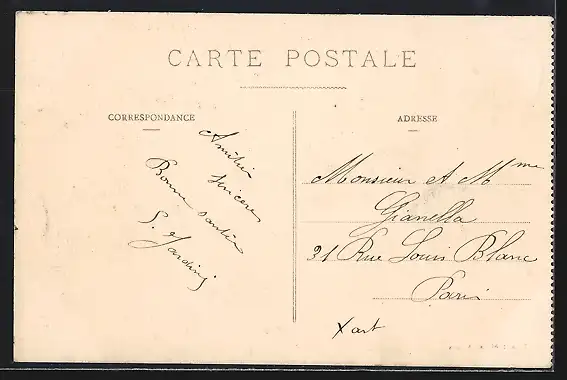 CARTE POSTALE
CORRESPONDANCE
Amitié
sincere
Bonne santée
ADRESSE
Monsieur et Mme
Gianella
31 Rue Louis Blanc
Paris